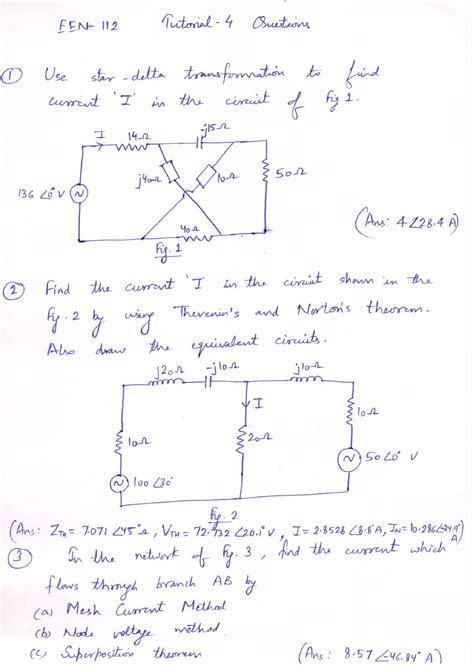 EEN-112 Tutorial-4 Questions
① Use star-delta transformation to find
current 'I' in the circuit of Fig 1.
I 14Ω -j15Ω
j40Ω 10Ω 50Ω
136 ∠0° V
40Ω
Fig. 1
(Ans: 4∠28.4 A)
② Find the current 'I' in the circuit shown in the
Fig. 2 by using Thevenin's and Norton's theorem.
Also draw the equivalent circuits.
j20Ω -j10Ω j10Ω
I
10Ω 20Ω 10Ω
100 ∠30° 50 ∠0° V
Fig. 2
(Ans: ZTH = 7.071 ∠45°Ω, VTH = 72.732 ∠20.1° V, I = 2.8528 ∠8.8° A, IN = 10.286∠-24.9° A)
③ In the network of Fig. 3, find the current which
flows through branch AB by
(a) Mesh Current Method
(b) Node voltage method
(c) Superposition theorem
(Ans: 8.57 ∠46.84° A)